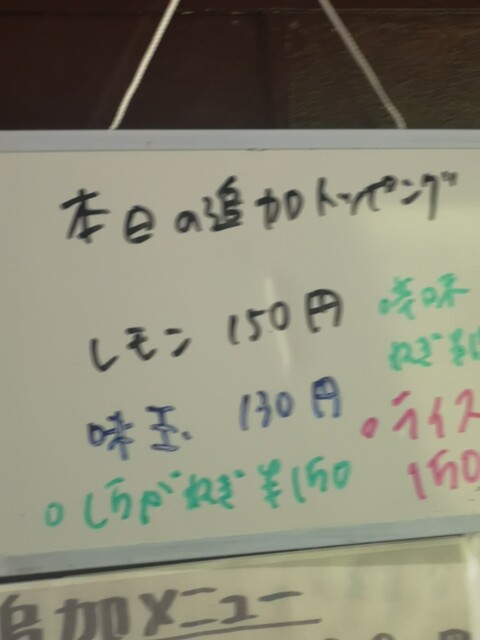 本日の追加トッピング
レモン 150円
味玉. 130円
○しらがねぎ ¥150
味
ねぎ ¥1
○ライス
150
追加メニュー